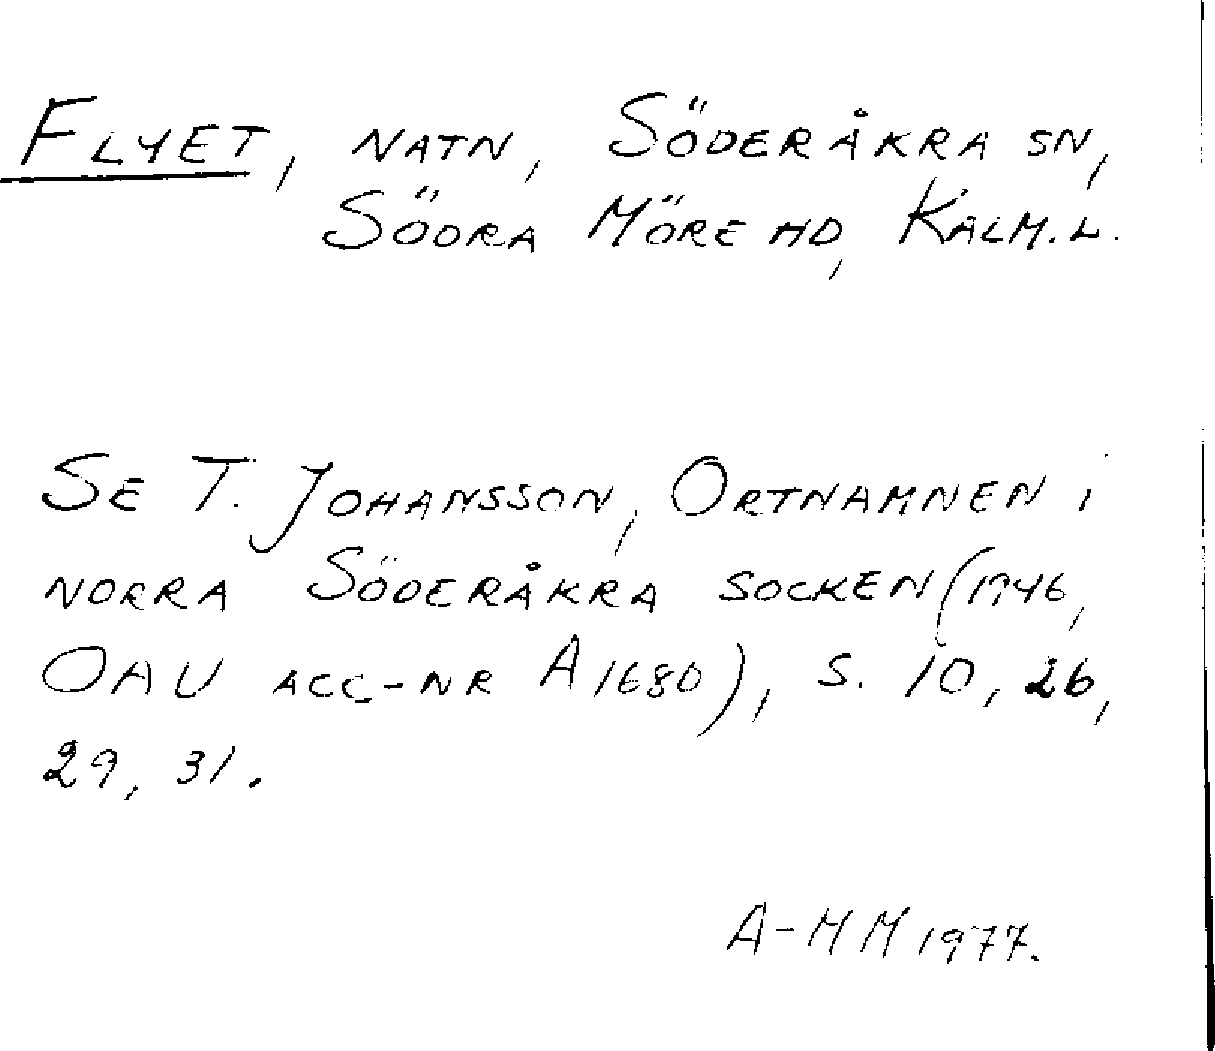 FLYET, NATN, SÖDERÅKRA SN,
SÖDRA MÖRE HD, KALM. L.
SE T. JOHANSSON, ORTNAMNEN I
NORRA SÖDERÅKRA SOCKEN (1946,
OAU ACC-NR A 1680), S. 10, 26,
29, 31.
A-MM 1977.